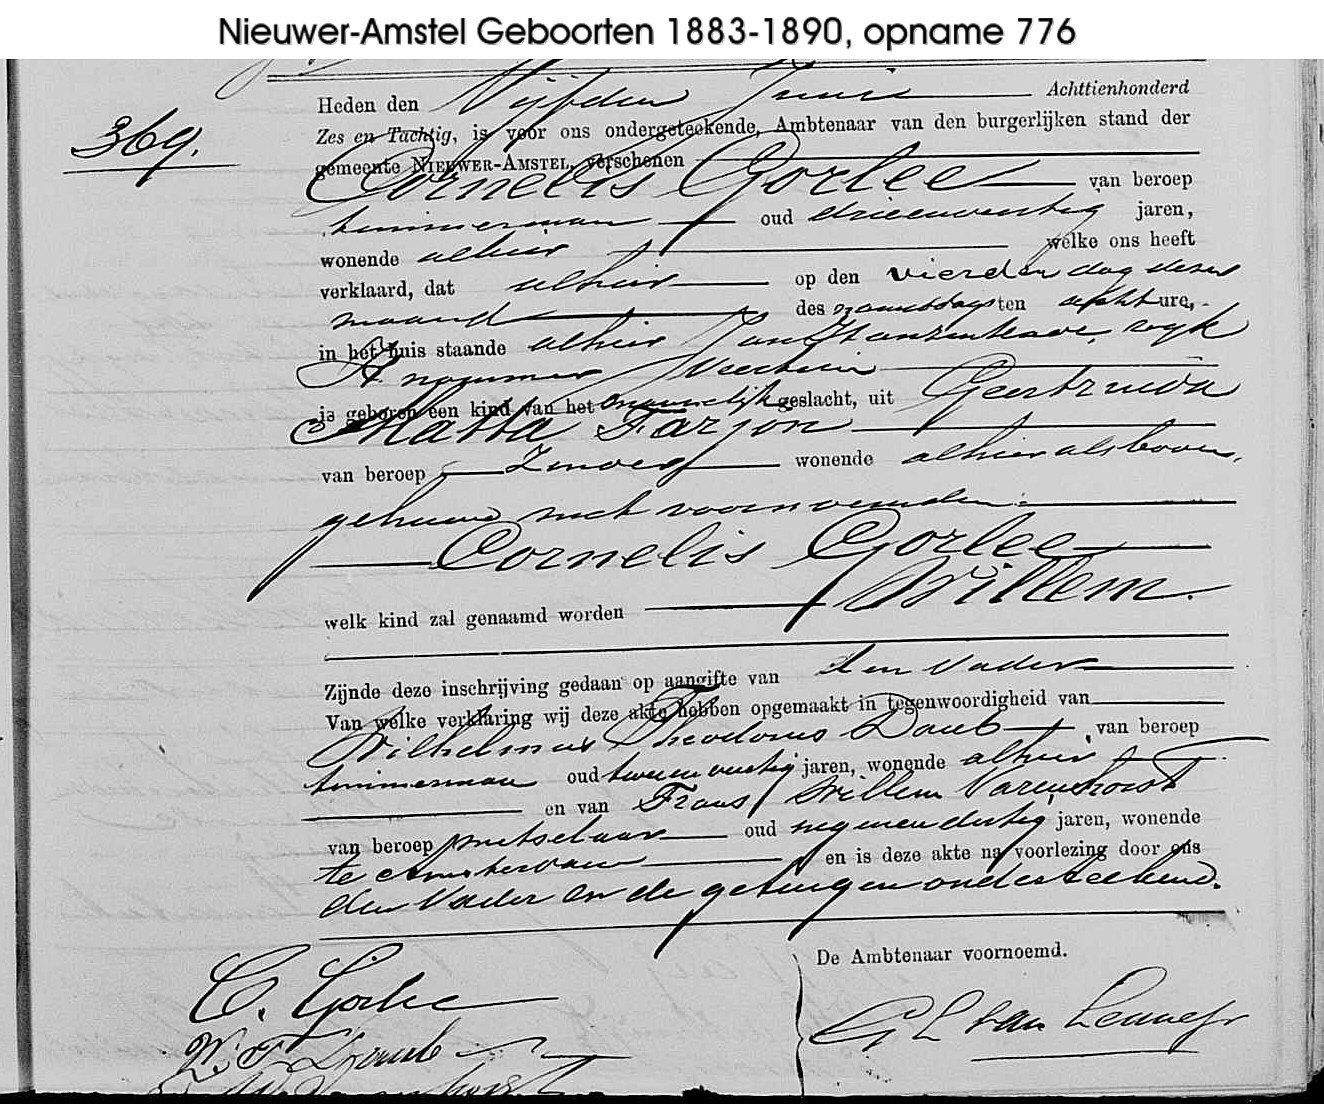 Nieuwer-Amstel Geboorten 1883-1890, opname 776
369.
Heden den Vijfden Junij Achttienhonderd
Zes en Tachtig, is voor ons ondergeteekende, Ambtenaar van den burgerlijken stand der
gemeente NIEUWER-AMSTEL, verschenen
Cornelis Gorlee van beroep
timmerman oud drieenveertig jaren,
wonende alhier welke ons heeft
verklaard, dat alhier op den vierden dag dezer
maand des namiddags ten acht ure,
in het huis staande alhier wyk
A nommer
is geboren een kind van het mannelijk geslacht, uit Geertruida
Matta Farjon
van beroep zonder wonende alhier als boven,
gehuwd met voornoemden
Cornelis Gorlee
welk kind zal genaamd worden Willem.
Zijnde deze inschrijving gedaan op aangifte van den Vader
Van welke verklaring wij deze akte hebben opgemaakt in tegenwoordigheid van
Wilhelmus Theodorus Daub van beroep
timmerman oud tweeenveertig jaren, wonende alhier
en van Frans Willem Varenhorst
van beroep metselaar oud negenendertig jaren, wonende
te Amsterdam en is deze akte na voorlezing door ons
den Vader en de getuigen onderteekend.
De Ambtenaar voornoemd.
C. Gorlee
W. T. Daub
G L van Lennep